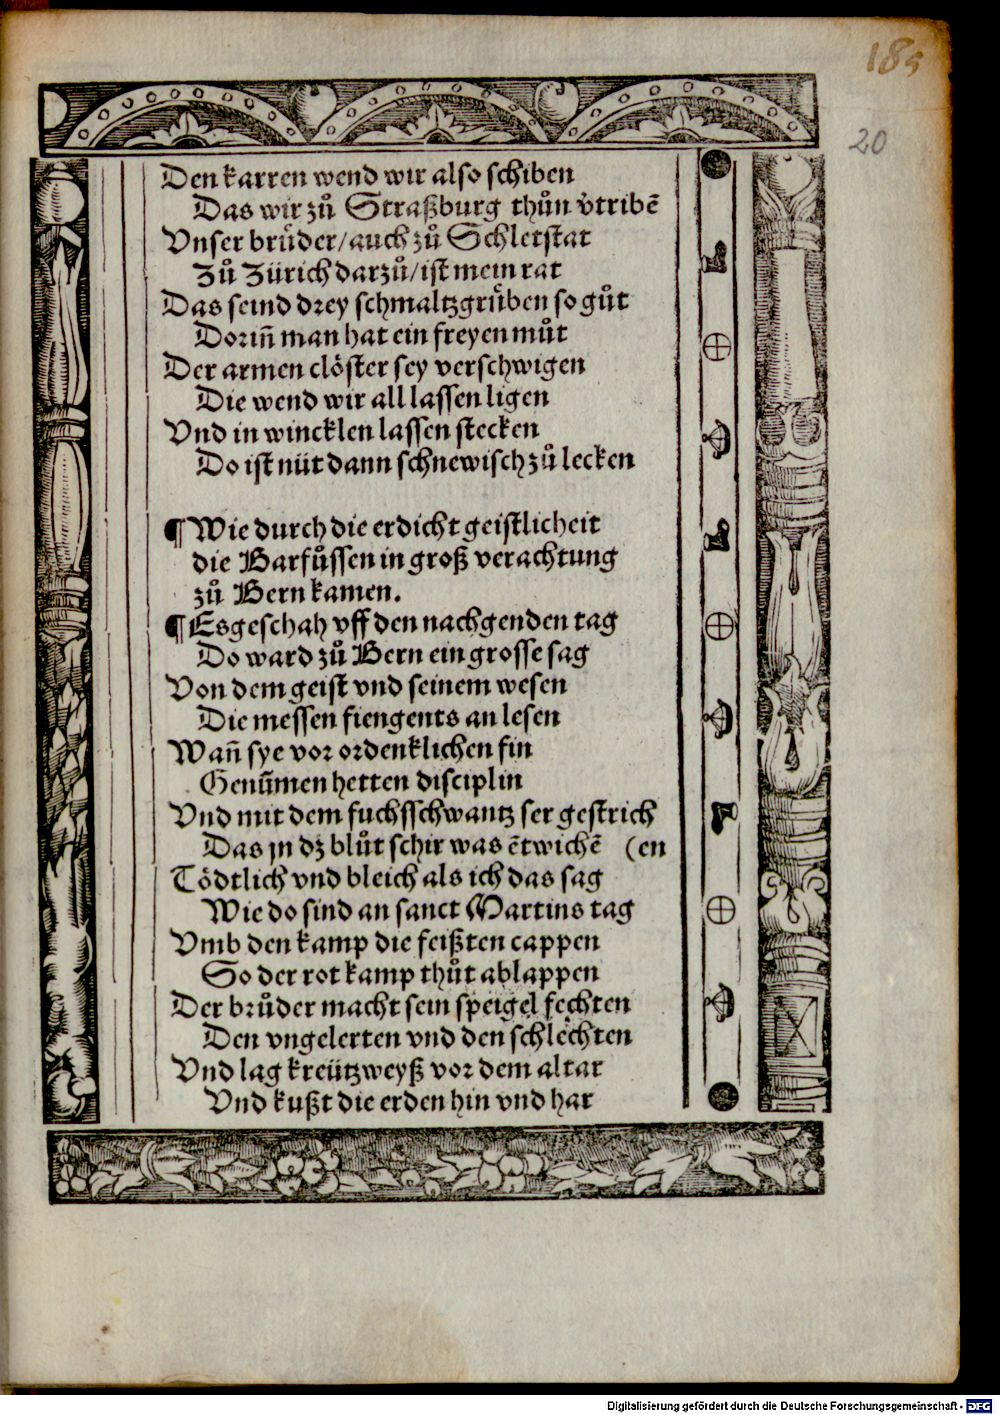 185
20
Den karren wend wir also schiben
Das wir zů Straßburg thůn v̈tribē
Vnser brůder/auch zů Schletstat
Zů Zürich darzů/ist mein rat
Das seind drey schmaltzgrůben so gůt
Dorin̄ man hat ein freyen můt
Der armen clöster sey verschwigen
Die wend wir all lassen ligen
Vnd in wincklen lassen stecken
Do ist nüt dann schnewisch zů lecken
¶ Wie durch die erdicht geistlicheit
die Barfůssen in groß verachtung
zů Bern kamen.
¶ Es geschah vff den nachgenden tag
Do ward zů Bern ein grosse sag
Von dem geist vnd seinem wesen
Die messen fiengents an lesen
Wan̄ sye vor ordenklichen fin
Genūmen hetten disciplin
Vnd mit dem fuchsschwantz ser gestrich
Das jn dz blůt schir was ētwichē (en
Tödtlich vnd bleich als ich das sag
Wie do sind an sanct Martins tag
Vmb den kamp die feißten cappen
So der rot kamp thůt ablappen
Der brůder macht sein speigel fechten
Den vngelerten vnd den schlechten
Vnd lag kreützweyß vor dem altar
Vnd kußt die erden hin vnd har
Digitalisierung gefördert durch die Deutsche Forschungsgemeinschaft - DFG